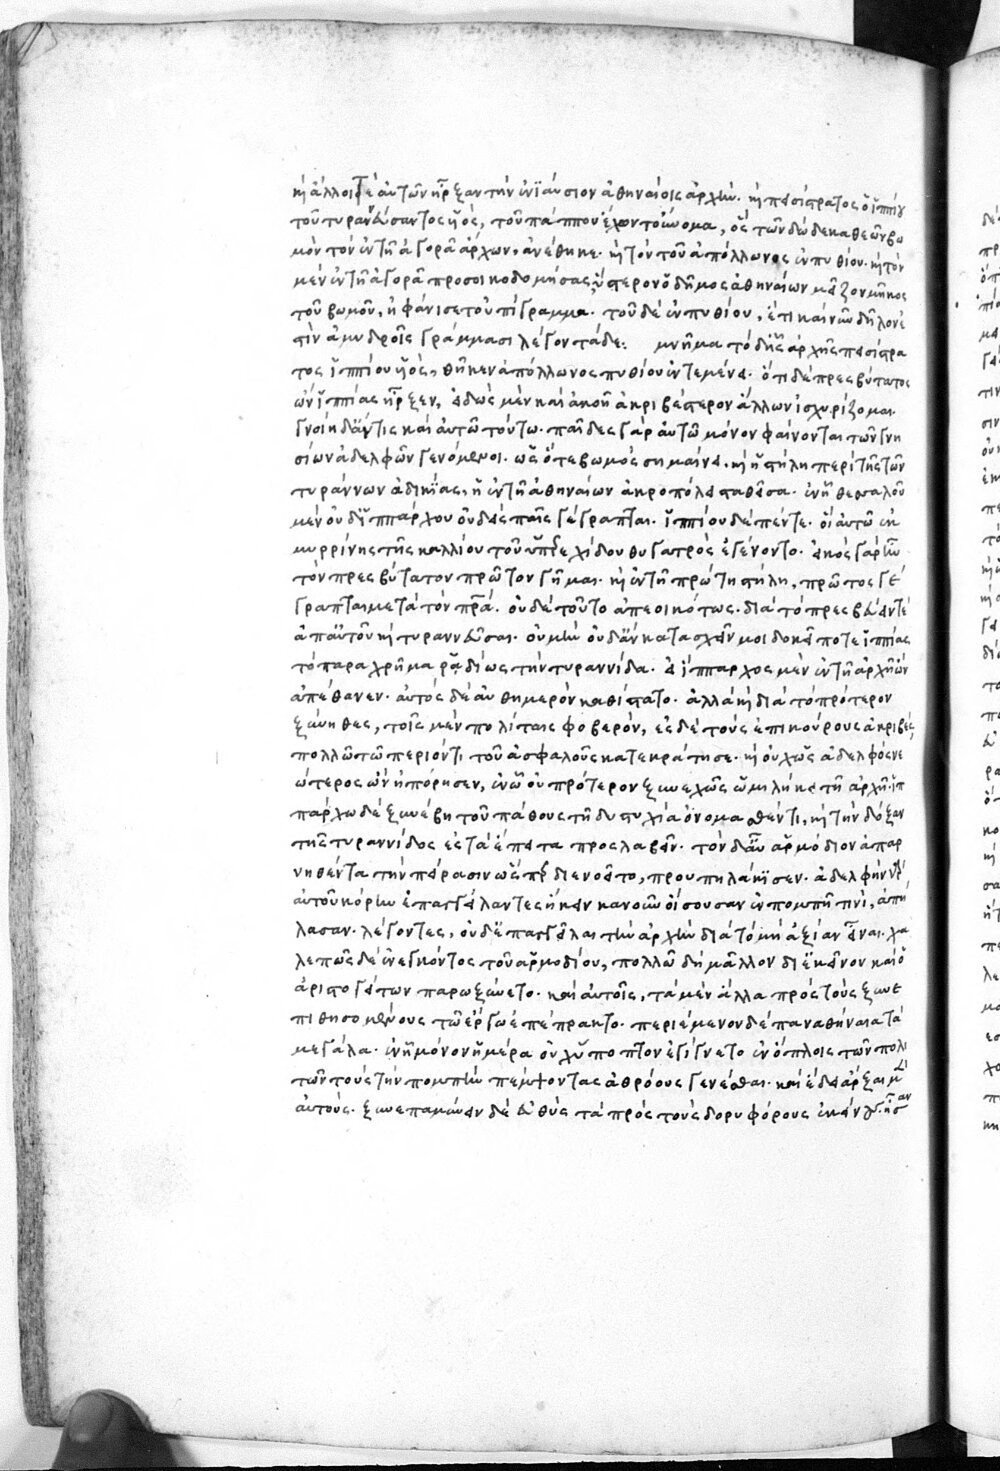 καὶ ἄλλοι τὲ αὐτῶν ἦρξαν τὴν ἐνιαύσιον ἀθηναίοις ἀρχήν. καὶ πεισίστρατος ὁ ἱππίου
τοῦ τυραννεύσαντος υἱός, τοῦ πάππου ἔχων τοὔνομα, ὃς τῶν δώδεκα θεῶν βω
μὸν τὸν ἐν τῇ ἀγορᾷ ἄρχων, ἀνέθηκε. καὶ τὸν τοῦ ἀπόλλωνος ἐν πυθίου. καὶ τὸν
μὲν ἐν τῇ ἀγορᾷ προσοικοδομήσας ὕστερον ὁ δῆμος ἀθηναίων μεῖζον μῆκος
τοῦ βωμοῦ, ἠφάνισε τοὐπίγραμμα. τοῦ δὲ ἐν πυθίου, ἔτι καὶ νῦν δῆλον ἐ
στὶν ἀμυδροῖς γράμμασι λέγον τάδε: μνῆμα τόδ᾽ ἧς ἀρχῆς πεισίστρα
τος ἱππίου υἱός, θῆκεν ἀπόλλωνος πυθίου ἐν τεμένει. ὅτι δὲ πρεσβύτατος
ὢν ἱππίας ἦρξεν, εἰδὼς μὲν καὶ ἀκοῇ ἀκριβέστερον ἄλλων ἰσχυρίζομαι.
γνοίη δἄν τις καὶ αὐτῷ τούτῳ. παῖδες γὰρ αὐτῷ μόνον φαίνονται τῶν γνη
σίων ἀδελφῶν γενόμενοι. ὡς ὅ τε βωμὸς σημαίνει. καὶ ἡ στήλη περὶ τῆς τῶν
τυράννων ἀδικίας, ἡ ἐν τῇ ἀθηναίων ἀκροπόλει σταθεῖσα. ἐν ᾗ θεσσαλοῦ
μὲν οὐδ᾽ ἱππάρχου οὐδεὶς παῖς γέγραπται. ἱππίου δὲ πέντε. οἳ αὐτῷ ἐκ
μυρρίνης τῆς καλλίου τοῦ ὑπερεχίδου θυγατρὸς ἐγένοντο. εἰκὸς γὰρ ἦν
τὸν πρεσβύτατον πρῶτον γῆμαι. καὶ ἐν τῇ πρώτῃ στήλῃ, πρῶτος γέ
γραπται μετὰ τὸν πατέρα. οὐδὲ τοῦτο ἀπεοικότως. διὰ τὸ πρεσβεύειν τὲ
ἀπ᾽ αὐτοῦ καὶ τυραννεῦσαι. οὐ μὴν οὐδ᾽ ἂν κατασχεῖν μοι δοκεῖ ποτε ἱππίας
τὸ παραχρῆμα ῥᾳδίως τὴν τυραννίδα. εἰ ἵππαρχος μὲν ἐν τῇ ἀρχῇ ὢν
ἀπέθανεν. αὐτὸς δὲ αὐθημερὸν καθίστατο. ἀλλὰ καὶ διὰ τὸ πρότερον
ξύνηθες, τοῖς μὲν πολίταις φοβερόν, ἐς δὲ τοὺς ἐπικούρους ἀκριβές,
πολλῷ τῷ περιόντι τοῦ ἀσφαλοῦς κατεκράτησε. καὶ οὐχ ὡς ἀδελφὸς νε
ώτερος ὢν ἠπόρησεν, ἐν ᾧ οὐ πρότερον ξυνεχῶς ὡμιλήκει τῇ ἀρχῇ. ἱπ
πάρχῳ δὲ ξυνέβη τοῦ πάθους τῇ δυστυχίᾳ ὀνομασθέντι, καὶ τὴν δόξαν
τῆς τυραννίδος ἐς τὰ ἔπειτα προσλαβεῖν. τὸν δ᾽ οὖν ἁρμόδιον ἀπαρ
νηθέντα τὴν πείρασιν ὥσπερ διενοεῖτο, προυπηλάκισεν. ἀδελφὴν γὰρ
αὐτοῦ κόρην ἐπαγγείλαντες ἥκειν κανοῦν οἴσουσαν ἐν πομπῇ τινὶ, ἀπή
λασαν. λέγοντες, οὐδὲ ἐπαγγεῖλαι τὴν ἀρχὴν διὰ τὸ μὴ ἀξίαν εἶναι. χα
λεπῶς δὲ ἐνεγκόντος τοῦ ἁρμοδίου, πολλῷ δὴ μᾶλλον δι᾽ ἐκεῖνον καὶ ὁ
ἀριστογείτων παρωξύνετο. καὶ αὐτοῖς, τὰ μὲν ἄλλα πρὸς τοὺς ξυνε
πιθησομένους τῷ ἔργῳ ἐπέπρακτο. περιέμενον δὲ παναθήναια τὰ
μεγάλα. ἐν ᾗ μόνον ἡμέρᾳ οὐχ ὕποπτον ἐγίγνετο ἐν ὅπλοις τῶν πολι
τῶν τοὺς τὴν πομπὴν πέμψοντας ἀθρόους γενέσθαι. καὶ ἔδει ἄρξαι μὲν
αὐτούς. ξυνεπαμύνειν δὲ εὐθὺς τὰ πρὸς τοὺς δορυφόρους ἐκείνους. ἦσαν